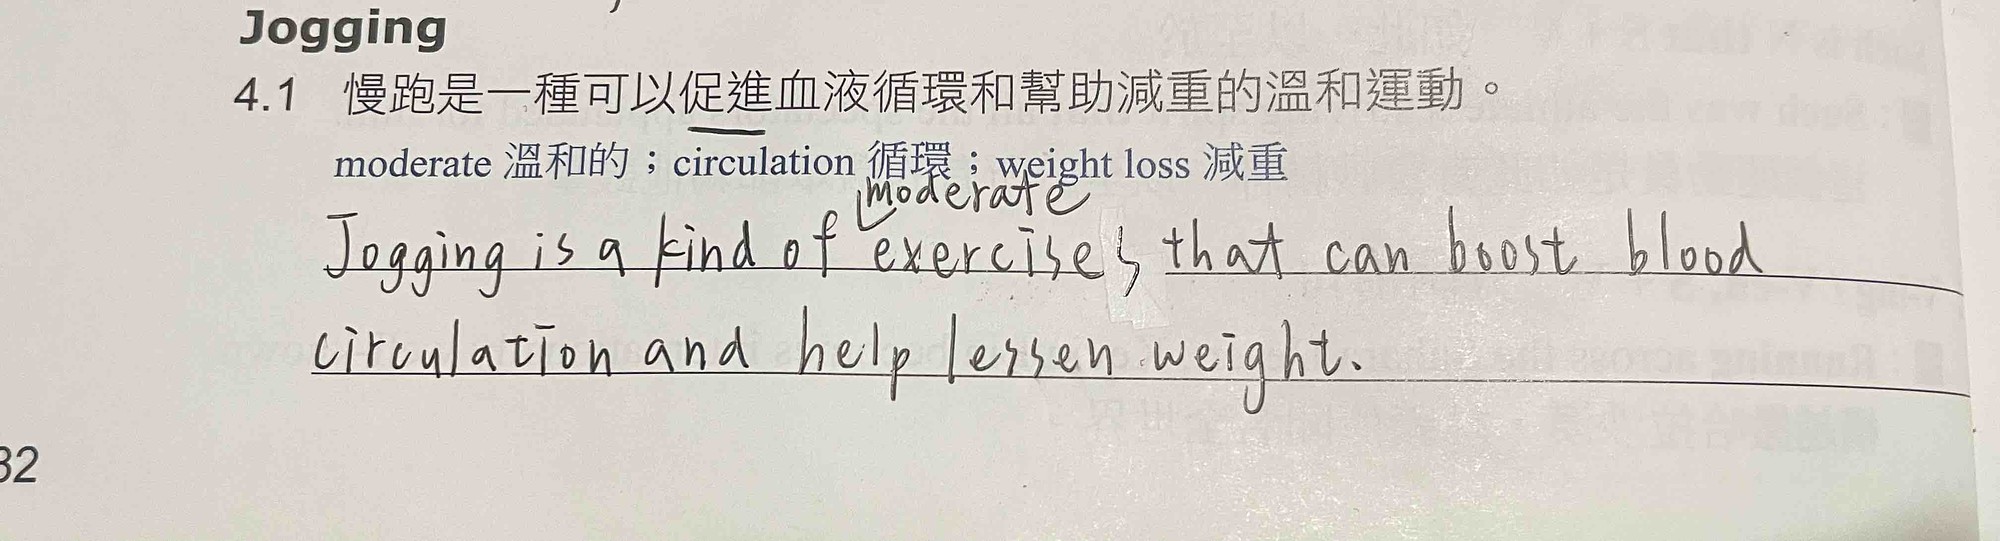 Jogging
4.1 慢跑是一種可以促進血液循環和幫助減重的溫和運動。
moderate 溫和的；circulation 循環；weight loss 減重
moderate
Jogging is a kind of exercises that can boost blood
circulation and help lessen weight.
32